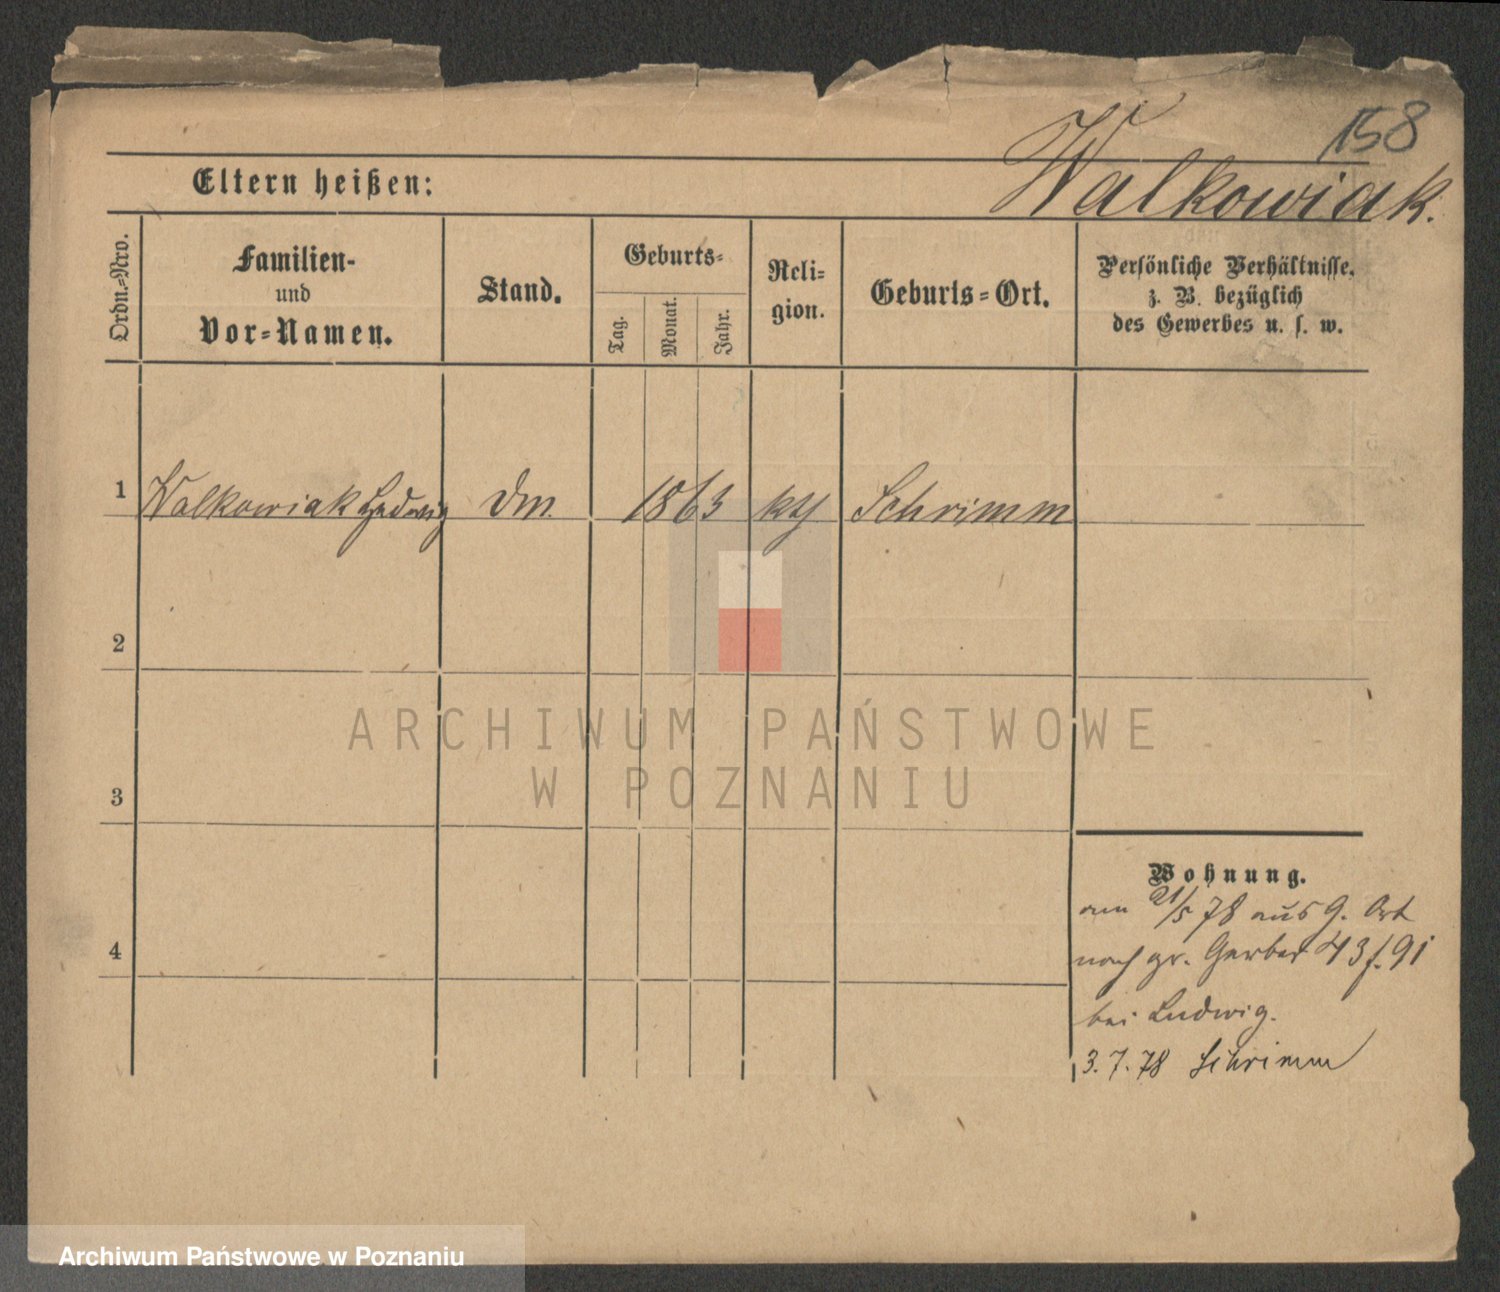 158
Walkowiak.
Eltern heißen:
Ordn.=Nro.
Familien-
und
Vor=Namen.
Stand.
Geburts=
Tag.
Monat.
Jahr.
Reli=
gion.
Geburts=Ort.
Persönliche Verhältnisse,
z. B. bezüglich
des Gewerbes u. s. w.
1 Walkowiak Hedwig 1863 Schrimm
2
3
4
ARCHIWUM PAŃSTWOWE
W POZNANIU
Wohnung.
am 21/5 78 aus g. Ort
nach gr. Gerber 43 f. 91
bei Ludwig.
3. 7. 78 Schrimm
Archiwum Państwowe w Poznaniu